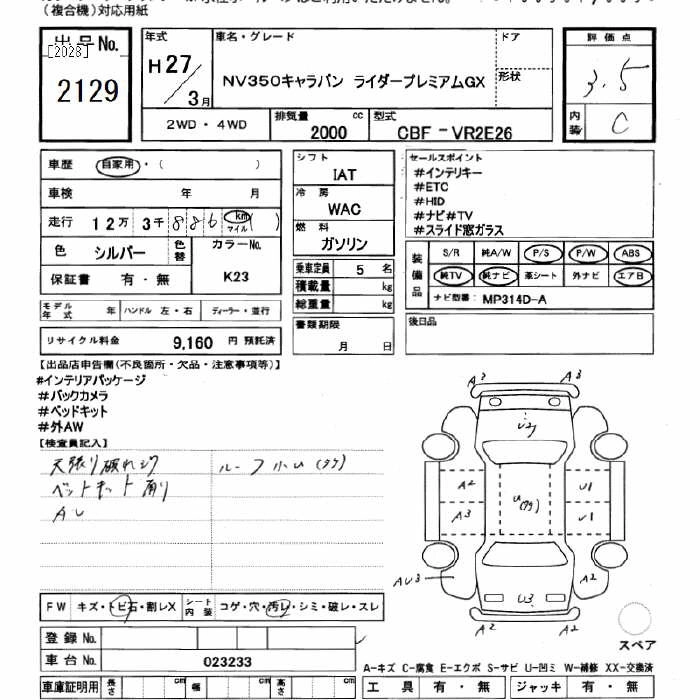 (複合機)対応用紙
出品No.
[2028]
2129
年式
H27/3月
車名・グレード
NV350キャラバン ライダープレミアムGX
ドア
形状
評価点
3.5
内装
C
2WD・4WD
排気量
2000
cc
型式
CBF-VR2E26
車歴
自家用・( )
車検 年 月
走行 12万 3千 886 km マイル ( )
色 シルバー
色替
カラーNo.
K23
保証書 有・無
シフト
IAT
冷房
WAC
燃料
ガソリン
乗車定員 5 名
積載量 kg
総重量 kg
セールスポイント
#インテリキー
#ETC
#HID
#ナビ#TV
#スライド窓ガラス
装備品
S/R 純A/W P/S P/W ABS
純TV 純ナビ 革シート 外ナビ エアB
ナビ型番: MP314D-A
モデル年式 年 ハンドル 左・右 ディーラー・並行
リサイクル料金 9,160 円 預託済
書類期限
月 日
後日品
【出品店申告欄(不良箇所・欠品・注意事項等)】
#インテリアパッケージ
#バックカメラ
#ベッドキット
#外AW
【検査員記入】
天張り破れシワ
ルーフ小U(タク)
ベットキット有り
AU
A3 A3
U3
A2 U(タク) U1
A3 U1
AU3 A2
U3
A2 A2
スペア
FW キズ・トビ石・割レX
シート内装 コゲ・穴・汚レ・シミ・破レ・スレ
登録No.
車台No. 023233
A-キズ C-腐食 E-エクボ S-サビ U-凹ミ W-補修 XX-交換済
車庫証明用 長さ cm 幅 cm 高さ cm
工具 有・無 ジャッキ 有・無